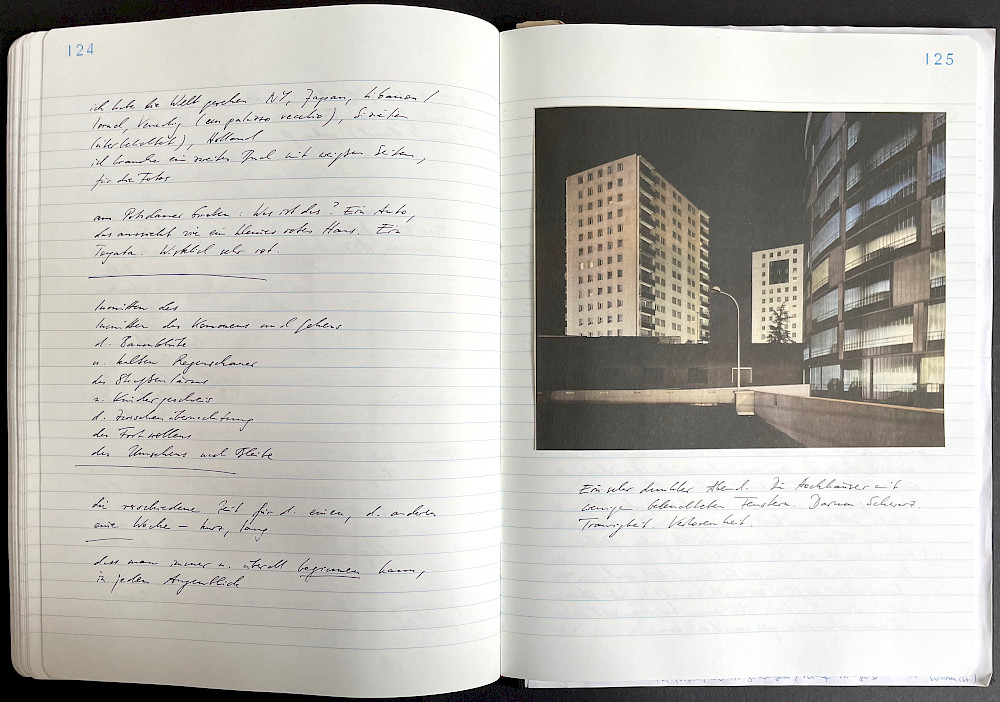 124
ich habe die Welt gesehen: NY, Japan, Libanon /
Israel, Venedig (ein palazzo vecchio), Sizilien
Holland
ich brauche ein zweites Buch mit weißen Seiten,
für die Fotos
am Potsdamer Graben: Was ist das? Ein Auto,
das aussieht wie ein kleines rotes Haus. Ein
Toyota. Wirklich sehr rot.
Inmitten des
Inmitten des Kommens und Gehens
d. Baumblüte
u. kalten Regenschauer
des Straßenlärms
u. Kindergeschreis
d. Zwischenübernachtung
des Fortwollens
des Umsehens und Bleibe
die verschiedene Zeit für d. einen, d. anderen
eine Woche – kurz, lang
dass man immer u. überall beginnen kann,
in jedem Augenblick
125
Ein sehr dunkler Abend. Die Hochhäuser mit
wenigen beleuchteten Fenstern. Darum Schwarz.
Traurigkeit. Verlorenheit.